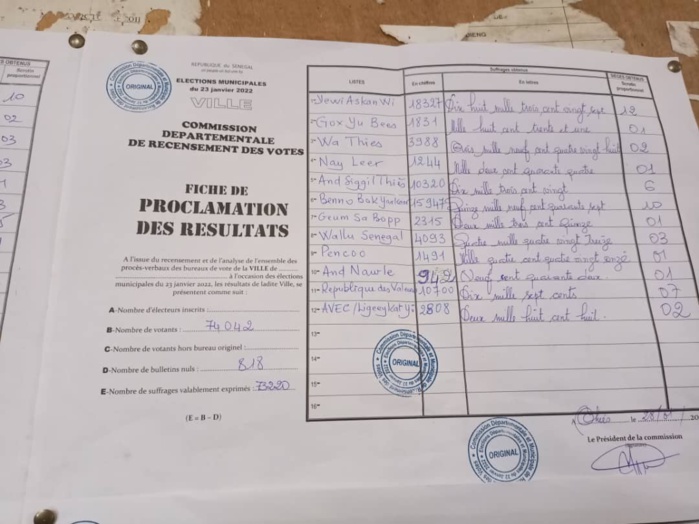 10
02
03
03
REPUBLIQUE DU SENEGAL
ELECTIONS MUNICIPALES
du 23 janvier 2022
VILLE
COMMISSION
DEPARTEMENTALE
DE RECENSEMENT DES VOTES
FICHE DE
PROCLAMATION
DES RESULTATS
A l'issue du recensement et de l'analyse de l'ensemble des
procès-verbaux des bureaux de vote de la VILLE de
à l'occasion des élections
municipales du 23 janvier 2022, les résultats de ladite Ville, se
présentent comme suit :
A-Nombre d'électeurs inscrits :
B-Nombre de votants : 74042
C-Nombre de votants hors bureau originel :
D-Nombre de bulletins nuls : 818
E-Nombre de suffrages valablement exprimés : 73220
(E = B – D)
ORIGINAL
Suffrages obtenus
LISTES En chiffres En lettres
Yewi Askan Wi 18327 Dix huit mille trois cent vingt sept 12
Gox Yu Bees 1831 Mille huit cent trente et une 01
Wa Thies 3988 Trois mille neuf cent quatre vingt huit 02
Nay Leer 1244 Mille deux cent quarante quatre 01
And Siggil Thiès 10320 Dix mille trois cent vingt 6
Benno Bokk Yakaar 15947 Quinze mille neuf cent quarante sept 10
Geum Sa Bopp 2315 Deux mille trois cent Quinze 01
Wallu Senegal 4093 Quatre mille quatre vingt Treize 03
Pencoo 1491 Mille quatre cent quatre vingt onze 01
10- And Nawle 942 Neuf cent quarante deux 01
11- Republique des Valeurs 10700 Dix mille sept cents 07
12- AVEC / 2808 Deux mille huit cent huit. 02
13-
14-
15-
16-
ORIGINAL
A Thiès le
Le Président de la commission
ORIGINAL